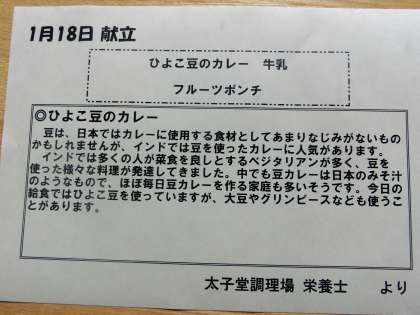 1月18日 献立
ひよこ豆のカレー 牛乳
フルーツポンチ
◎ひよこ豆のカレー
豆は、日本ではカレーに使用する食材としてあまりなじみがないもの
かもしれませんが、インドでは豆を使ったカレーに人気があります。
インドでは多くの人が菜食を良しとするベジタリアンが多く、豆を
使った様々な料理が発達してきました。中でも豆カレーは日本のみそ汁
のようなもので、ほぼ毎日豆カレーを作る家庭も多いそうです。今日の
給食ではひよこ豆を使っていますが、大豆やグリンピースなども使うこ
とがあります。
太子堂調理場 栄養士 より